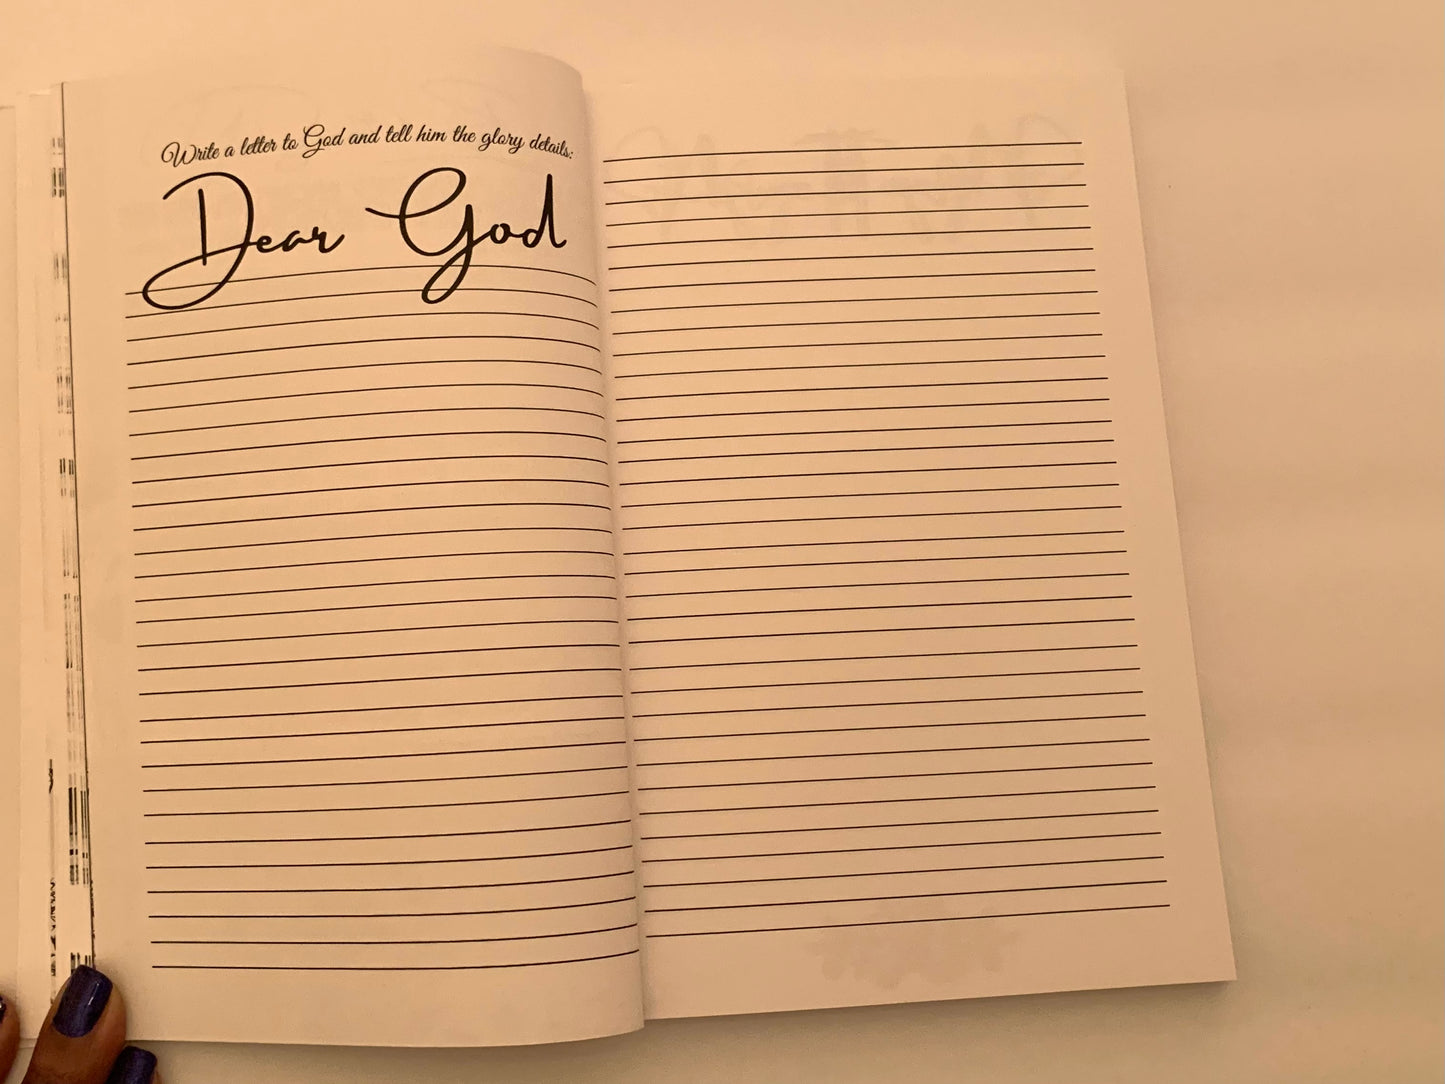 Write a letter to God and tell him the glory details:
Dear God